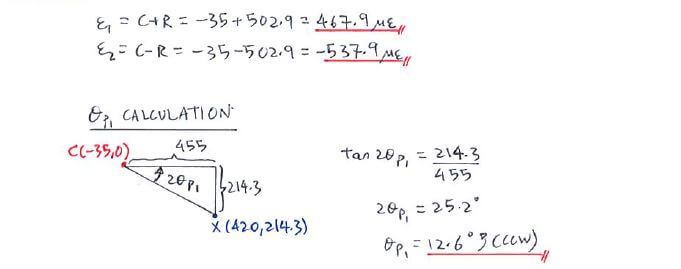 ε₁ = C+R = -35+502.9 = 467.9 με
ε₂ = C-R = -35-502.9 = -537.9 με
θp₁ CALCULATION:
455
C(-35,0)
2θp₁
214.3
X (420,214.3)
tan 2θp₁ = 214.3/455
2θp₁ = 25.2°
θp₁ = 12.6° (CCW)